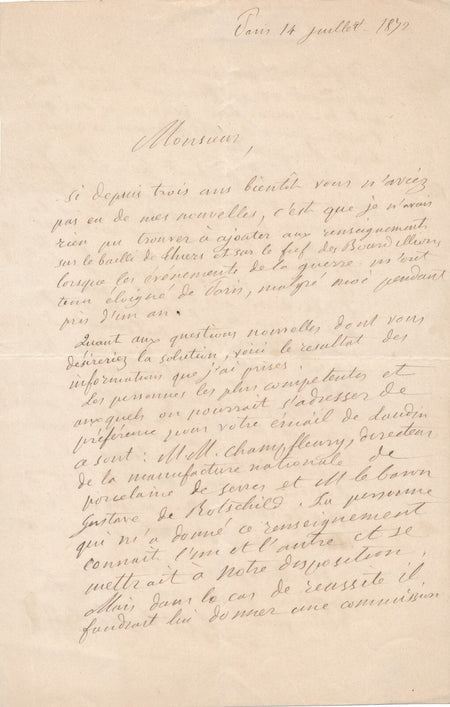 Paris 14 juillet 187
Monsieur,
Si depuis trois ans bientôt vous n'aviez
pas eu de mes nouvelles, c'est que je n'avais
rien pu trouver à ajouter aux renseignements
sur le bailli de et sur le fief des
lorsque les événements de la guerre m'ont
tenu éloigné de Paris, malgré moi pendant
près d'un an.
Quant aux questions nouvelles dont vous
désireriez la solution, voici le résultat des
informations que j'ai prises.
Les personnes les plus compétentes et
auxquels on pourrait s'adresser de
préférence pour votre émail de Laudin
sont : MM. Champfleury, directeur
de la manufacture nationale de
porcelaine de Sevres et M le baron
Gustave de Rotschild. La personne
qui m'a donné ce renseignement
connait l'un et l'autre et se
mettrait à notre disposition.
Mais dans le cas de reussite il
faudrait lui donner une commission